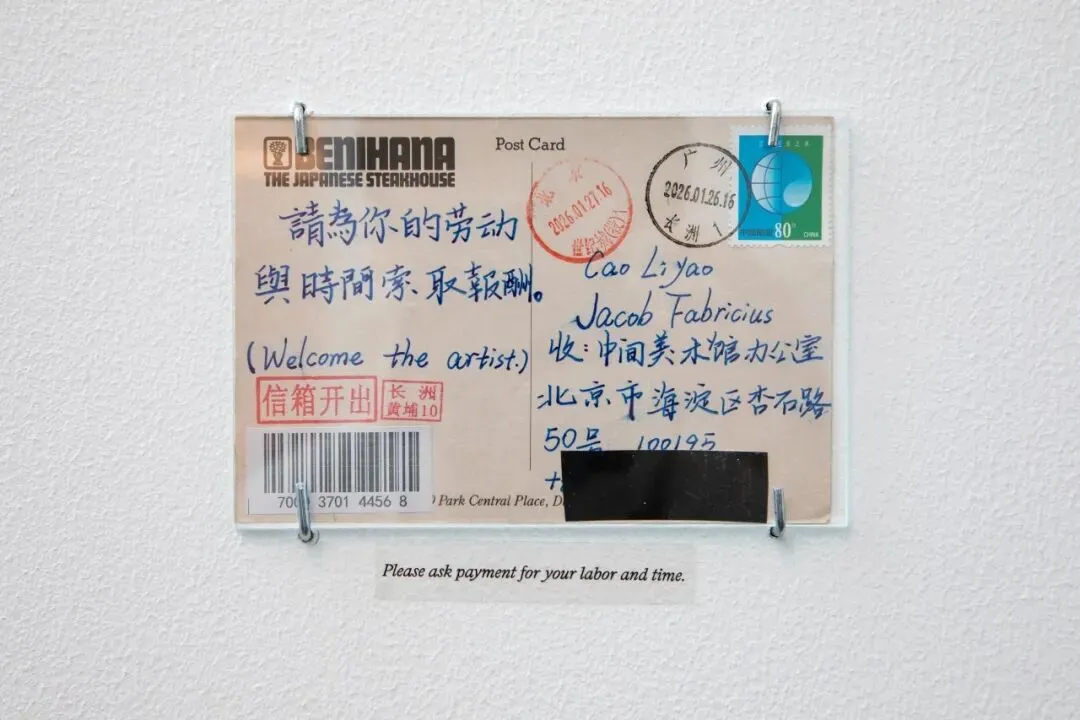 BENIHANA
THE JAPANESE STEAKHOUSE
請為你的劳动
與時間索取報酬。
(Welcome the artist.)
信箱开出
长洲
黄埔10
7000 3701 4456 8
Park Central Place, D
Post Card
北京
2026.01.27.16
广州
2026.01.26.16
长洲 1
80
CHINA
Cao Liyao
Jacob Fabricius
收:中间美术馆办公室
北京市海淀区杏石路
50号 100195
Please ask payment for your labor and time.